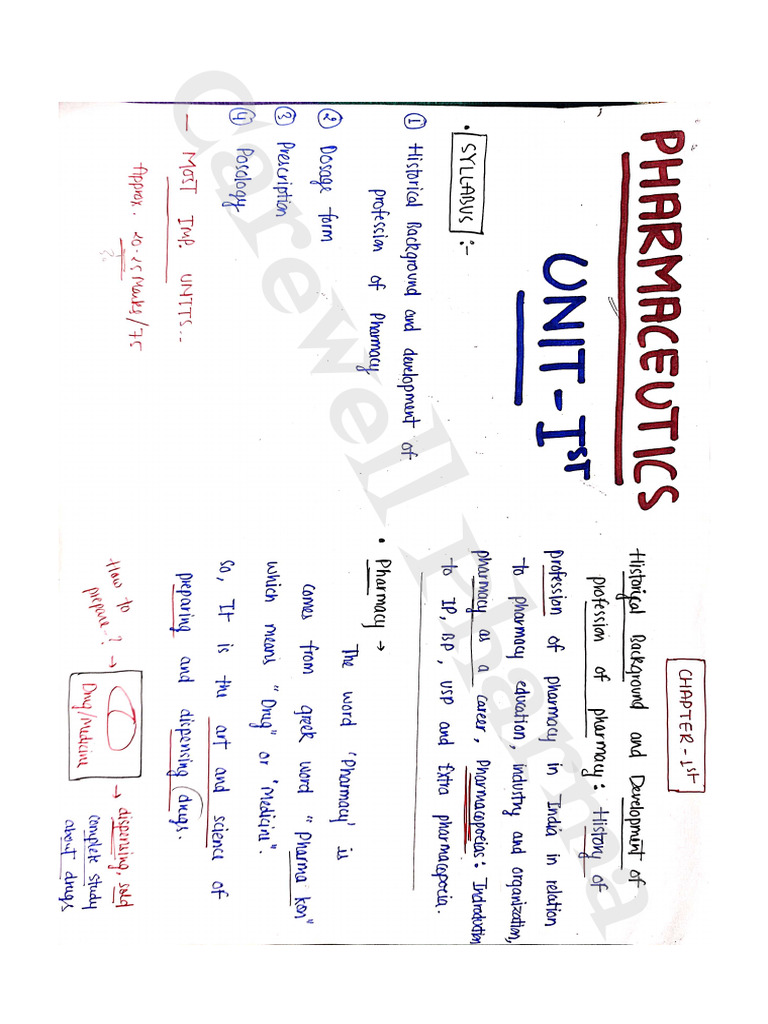 PHARMACEUTICS
UNIT-Iˢᵗ
• SYLLABUS :-
① Historical Background and development of
profession of Pharmacy
② Dosage form
③ Prescription
④ Posology
— MOST IMP. UNITS...
Approx. 20-25 Marks/75
CHAPTER-1ˢᵗ
Historical Background and Development of
profession of pharmacy: History of
profession of pharmacy in India in relation
to pharmacy education, industry and organization,
pharmacy as a career, Pharmacopoeias: Indroduction
to IP, BP, USP and Extra pharmacopoeia.
• Pharmacy →
The word 'Pharmacy' is
comes from greek word "Pharma kon"
which means "Drug" or "Medicine".
So, It is the art and science of
preparing and dispensing drugs.
How to
prepare-? →
Drug/Medicine
→ dispensing, sold
complete study
about drugs
Carewell Pharma